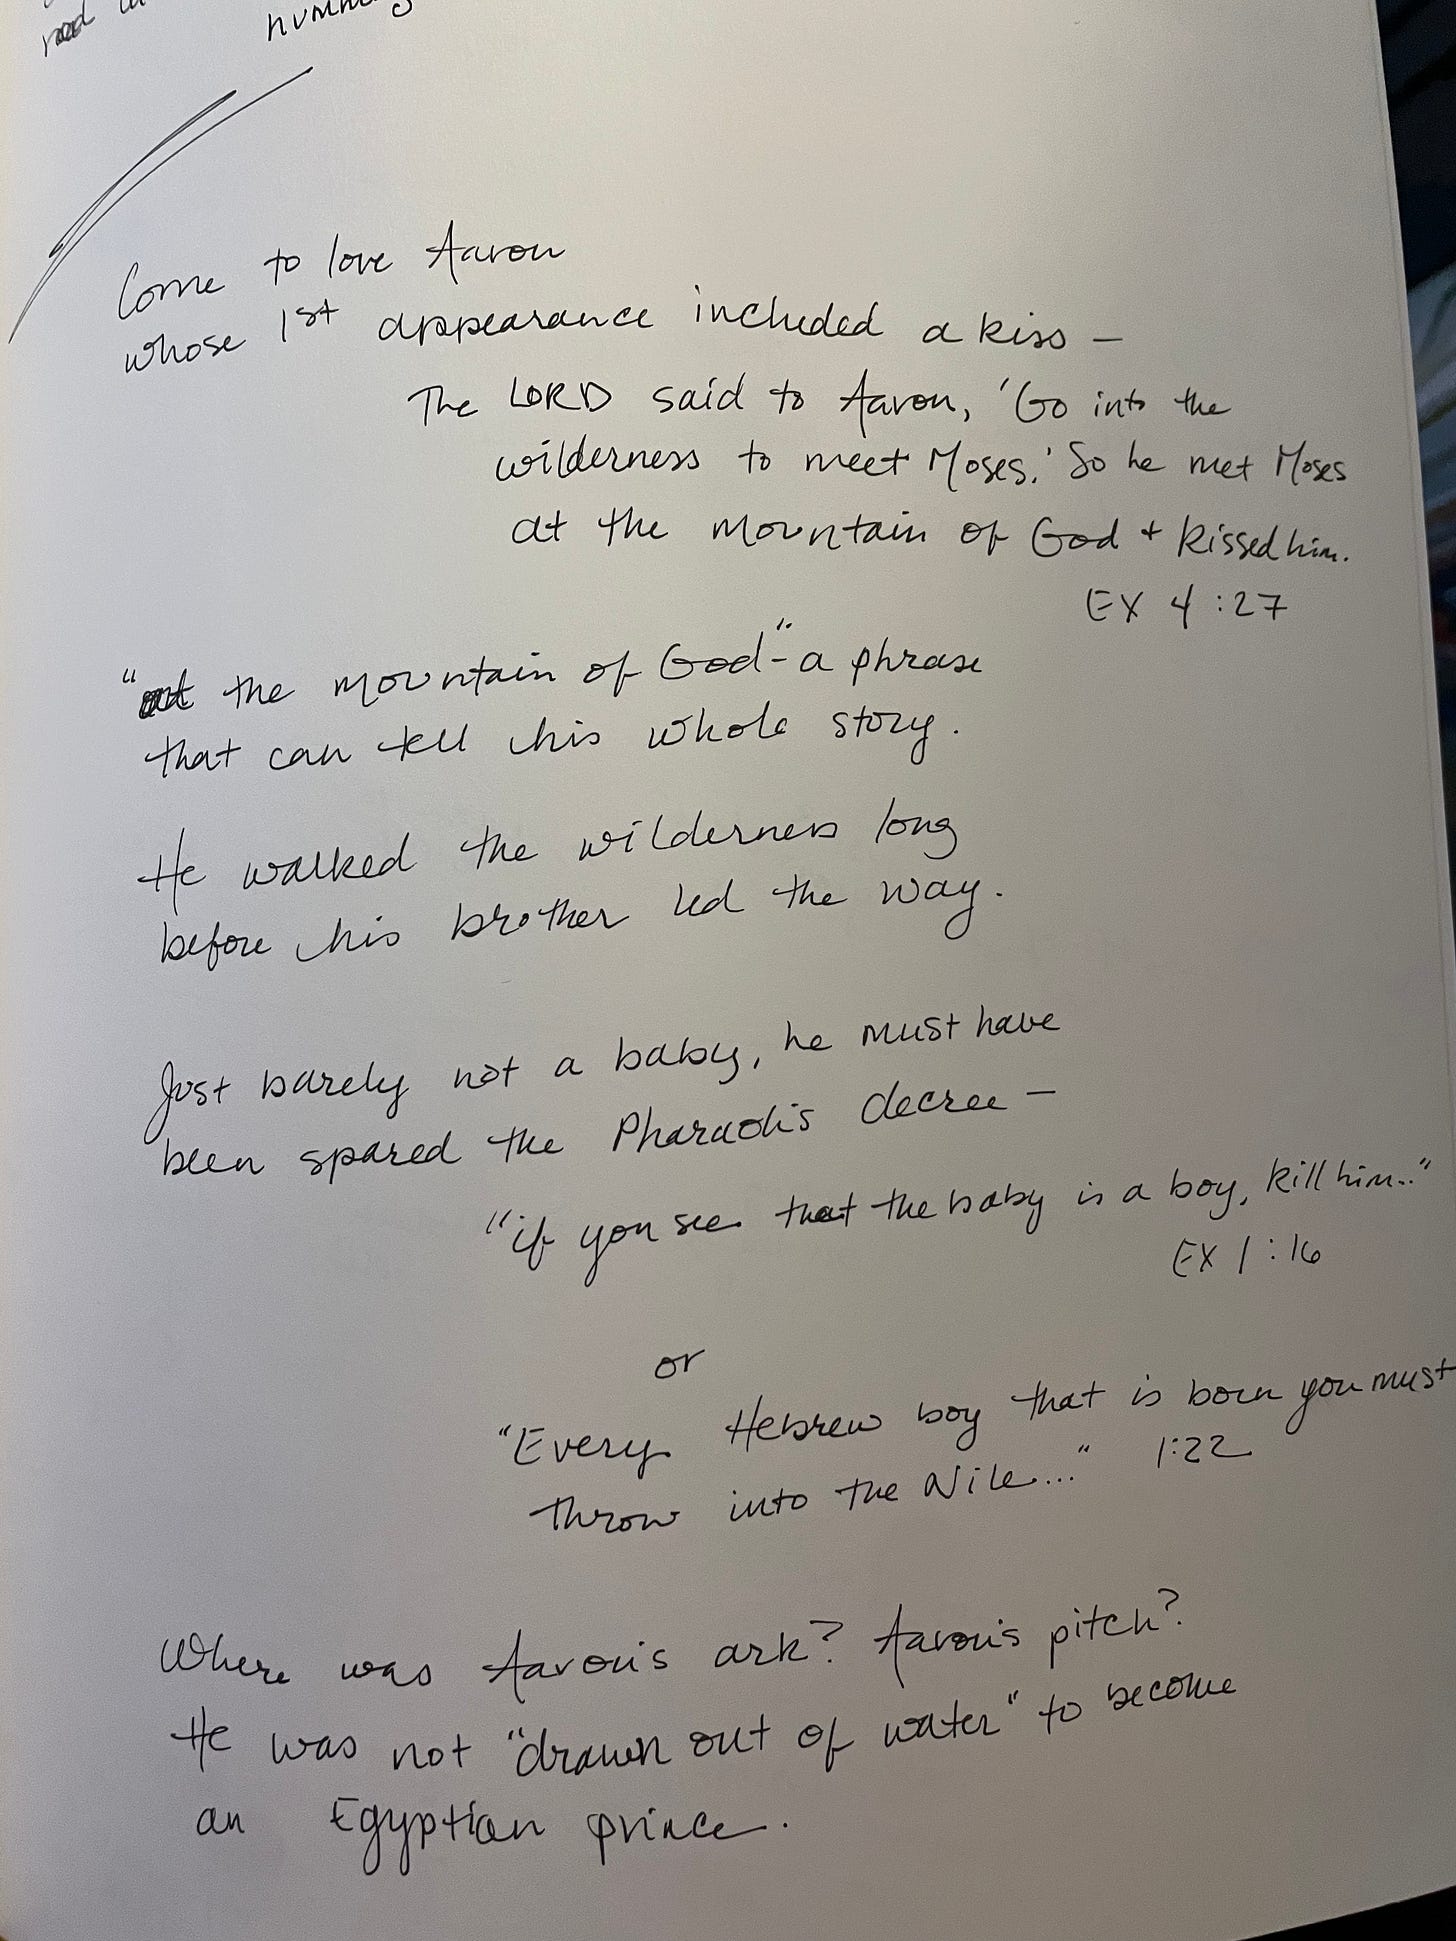 Come to love Aaron
whose 1st appearance included a kiss –
The LORD said to Aaron, 'Go into the
wilderness to meet Moses.' So he met Moses
at the mountain of God + kissed him.
EX 4:27
"at the mountain of God" - a phrase
that can tell his whole story.
He walked the wilderness long
before his brother led the way.
Just barely not a baby, he must have
been spared the Pharaoh's decree –
"if you see that the baby is a boy, kill him.."
EX 1:16
or
"Every Hebrew boy that is born you must
throw into the Nile..." 1:22
Where was Aaron's ark? Aaron's pitch?
He was not "drawn out of water" to become
an Egyptian prince.